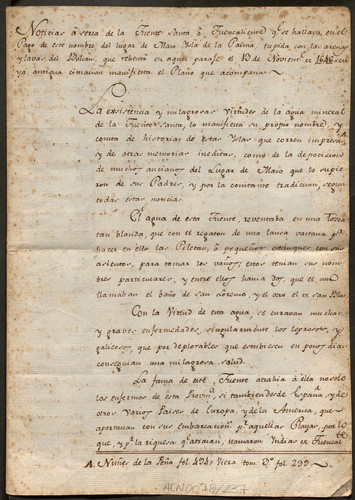 Noticias a serca de la Fuente Santa ô Fuencaliente qᵉ se hallava en el
Pago de este nombre del lugar de Mazo Ysla de la Palma, tupida con las arenas
y lavas del Bolcan, que rebentó en aquel parage el 13 de Noviemᵉ de 1646 cuia
ya antigua cituacion manifiesta el Plano que acompaña.
La existencia y milagrosas virtudes de la agua mineral
de la Fuente santa, lo manifiesta su propio nombre, y
consta de historias de estas Yslas que corren impresas
y de otras memorias ineditas, como de la deposicion
de muchos ancianos del Lugar de Mazo que lo supie
ron de sus Padres, y por la constante tradicion, segun
todas estas noticias.
El agua de esta Fuente, reventaba en una Tosca
tan blanda, que con el regaton de una lansa bastava pᵃ
hacer en ella, las Piletas, ô pequeños estanques con sus
asientos, para tomar los vaños, estos tenian sus nom
bres particulares, y entre ellos havia dos, que el uno
llamaban el baño de san Lorenso, y el otro el de san Blas.
Con la Virtud de esta agua, se curavan muchas
y graves enfermedades, singularmente los leprosos, y
galicosos, que por deplorables que estubiesen en pocos dias
conseguian una milagrosa salud.
La fama de esta Fuente atrahia â ella no solo
los enfermos de esta Provinᵃ, si tambien desde Españᵃ y de
otros varios Paises de Europa, y de la America, que
aportavan con sus embarcacionˢ pʳ aquellas Playas, por lo
que, y pʳ la riquesa qᵉ atraían, llamaron Indias de Fuencalᵗᵉ
A. Nuñes de la Peña fol. 494. Viera tom. 3º fol. 299.